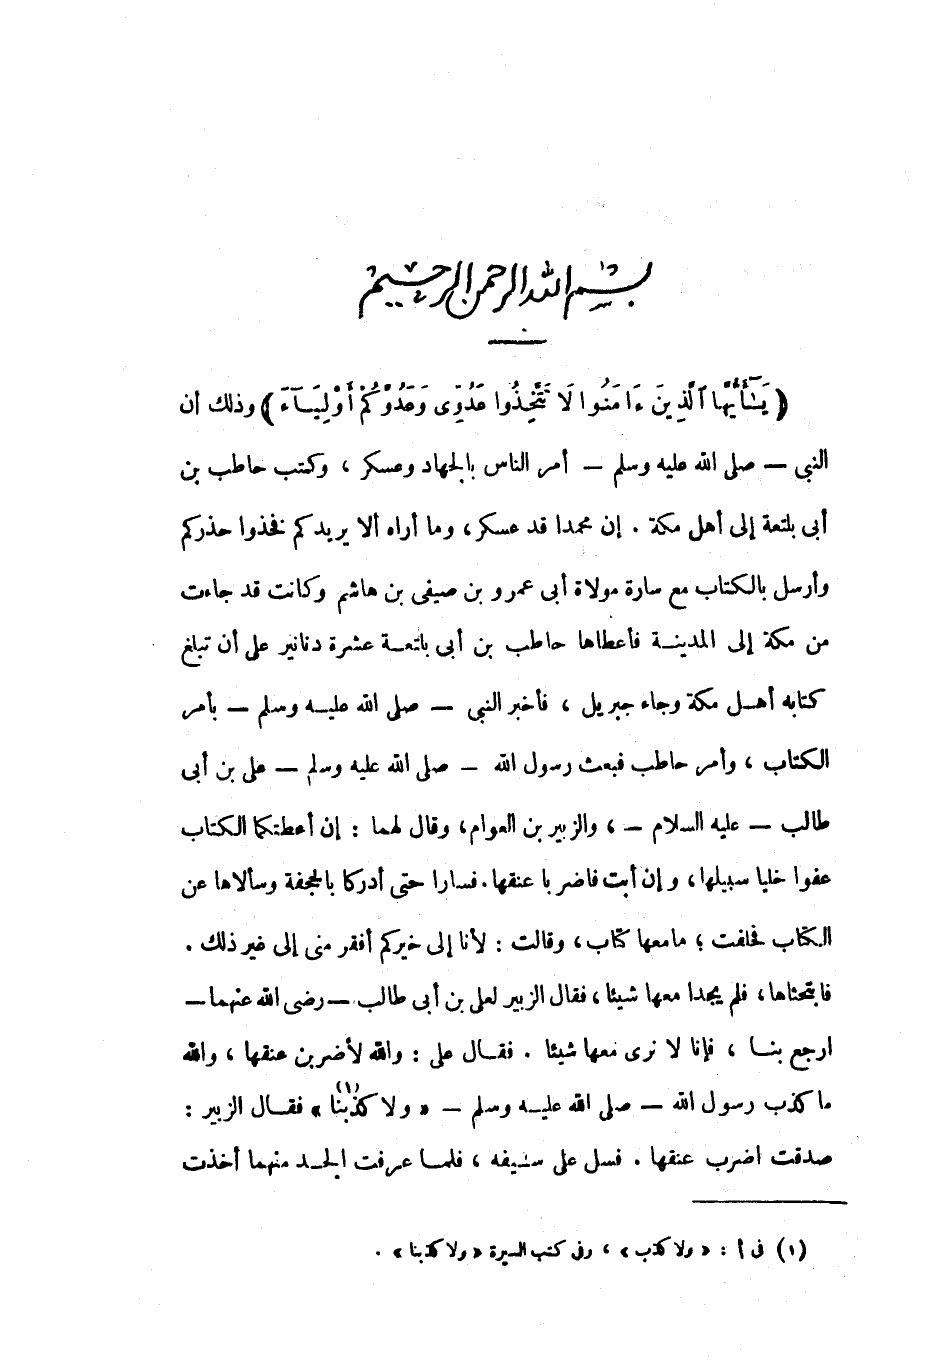 بسم الله الرحمن الرحيم
(يَـٰٓأَيُّهَا ٱلَّذِينَ ءَامَنُوا لَا تَتَّخِذُوا عَدُوِّى وَعَدُوَّكُمْ أَوْلِيَـآءَ) وذلك أن
النبى — صلى الله عليه وسلم — أمر الناس بالجهاد وعسكر ، وكتب حاطب بن
أبى بلتعة إلى أهل مكة . إن محمدا قد عسكر ، وما أراه ألا يريدكم فخذوا حذركم
وأرسل بالكتاب مع سارة مولاة أبى عمرو بن صيفى بن هاشم وكانت قد جاءت
من مكة إلى المدينـة فأعطاها حاطب بن أبى بلتعـة عشرة دنانير على أن تبلغ
كتابه أهـل مكة وجاء جبريل ، فأخبر النبى — صلى الله عليـه وسـلم — بأمر
الكتاب ، وأمر حاطب فبعث رسول الله — صلى الله عليه وسلم — على بن أبى
طالب — عليه السلام — ، والزبير بن العوام ، وقال لهما : إن أعطتكما الكتاب
عفوا خليا سبيلها ، وإن أبت فاضربا عنقها . فسارا حتى أدركا بالجحفة وسألاها عن
الكتاب فحلفت ؛ مامعها كتاب ، وقالت : لأنا إلى خيركم أفقر منى إلى غير ذلك .
فابتحثاها ، فلم يجدا معها شيئا ، فقال الزبير لعلى بن أبى طالب — رضى الله عنهما —
ارجع بنـا ، فإنا لا نرى معها شيئا . فقـال على : والله لأضربن عنقها ، والله
ما كذب رسول الله — صلى الله عليـه وسلم — « ولا كذبنا (١) » فقـال الزبير :
صدقت اضرب عنقها . فسل على سـيفه ، فلمـا عرفت الجـد منهما أخذت
(١) فى أ : « ولا كذب » ، وفى كتب السيرة « ولا كذبنا » .